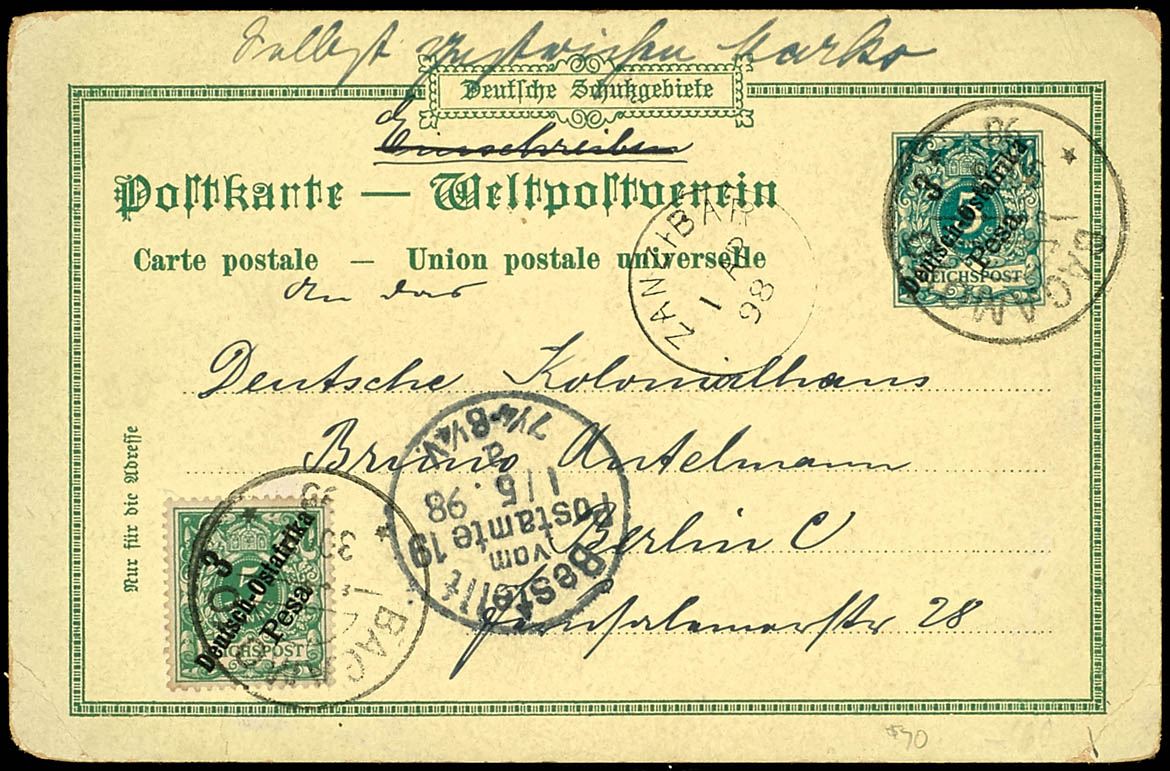 Deutsche Schutzgebiete
Einschreiben
Postkarte — Weltpostverein
Carte postale — Union postale universelle
An das
Deutsche Kolonialhaus
Bruno Antelmann
Berlin C
Jerusalemerstr 28
Nur für die Adresse
3
Deutsch-Ostafrika
Pesa
5
REICHSPOST
BAGAMO
ZANZIBAR
1
AP
98
Bestellt
vom
Postamte 19
1/5. 98
7¼-8¼V.
3
Deutsch-Ostafrika
Pesa
5
REICHSPOST
BAGAM
$70